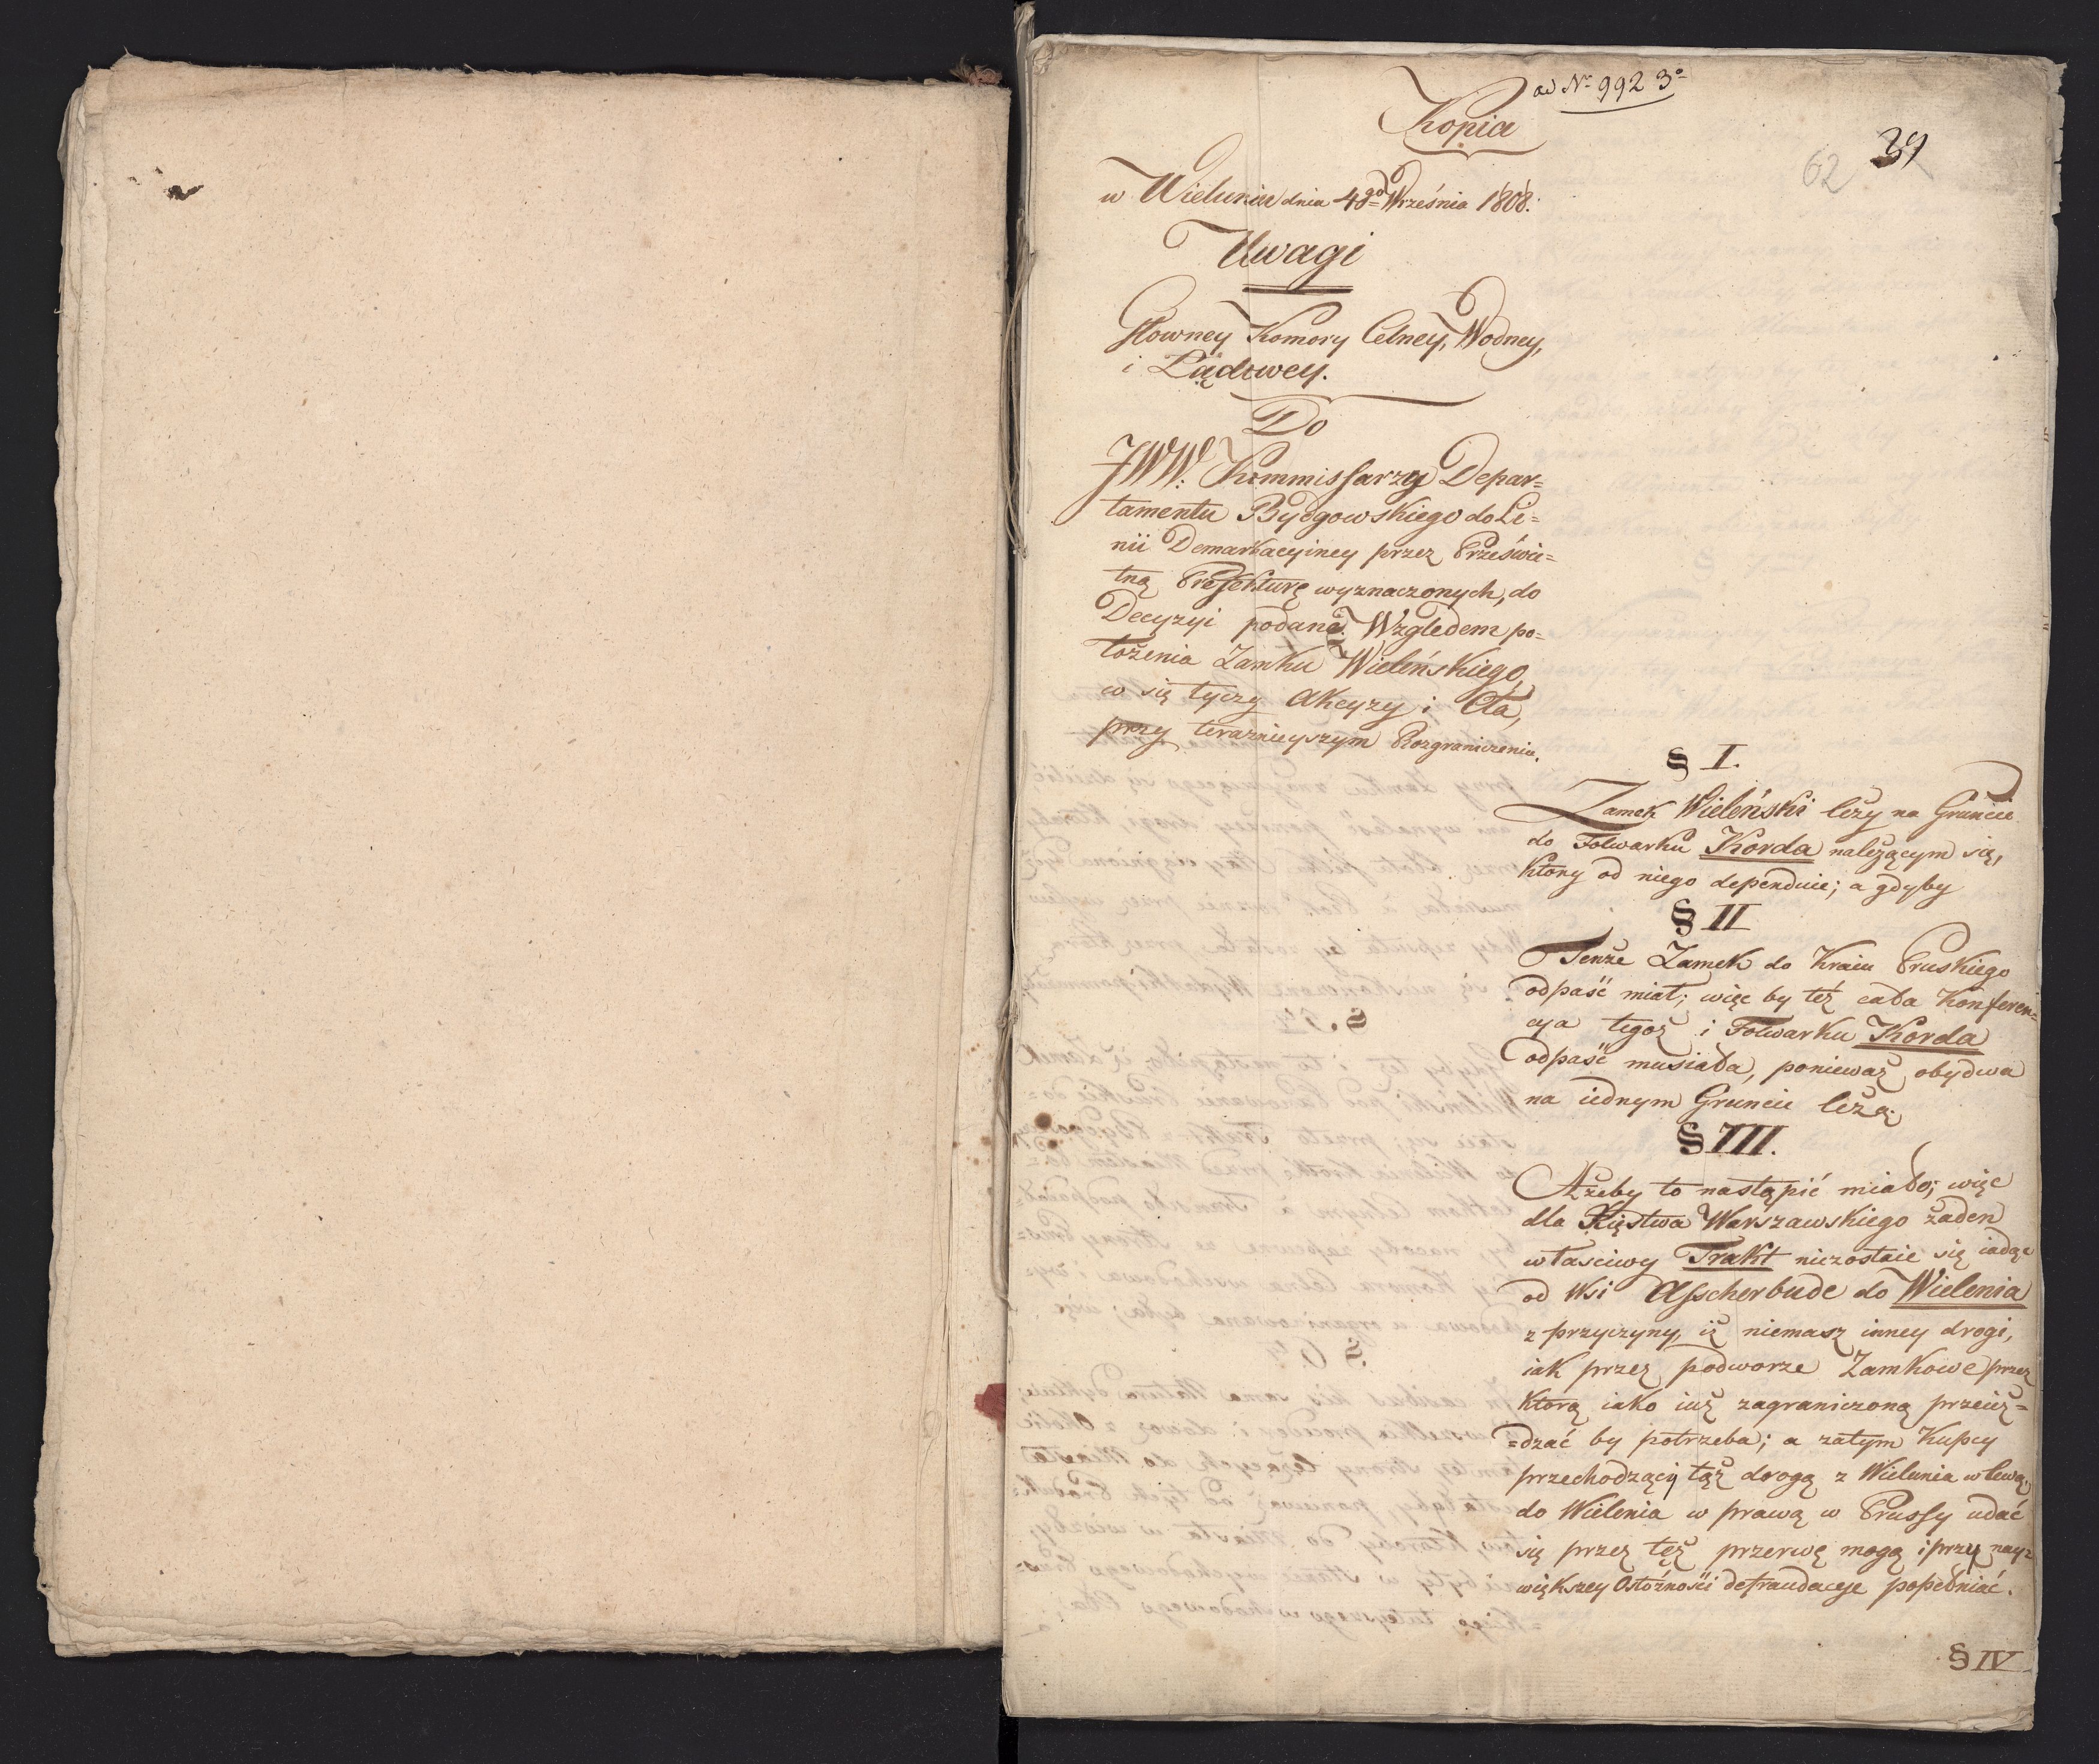 ad Nr 992 3o
Kopia
62 39
w Wieluniu dnia 48go Września 1808.
Uwagi
Głowney Komory Celney, Wodney,
i Lądowey.
Do
JWW. Kommissarzy Depar=
tamentu Bydgowskiego do Li=
nii Demarkacyiney przez Prześwie=
tną Prefekturę wyznaczonych, do
Decyzyi podane. Względem po=
łożenia Zamku Wieleńskiego,
co się tyczy Akcyzy i Cła,
przy teraznieyszym Rozgraniczeniu.
§ I.
Zamek Wieleński leży na Gruncie
do Folwarku Korda należącym się,
ktory od niego dependuie; a gdyby
§ II
Tenże Zamek do Kraiu Pruskiego
odpaść miał; więc by też cała Konferen=
cya tegoż i Folwarku Korda
odpaść musiała, ponieważ obydwa
na iednym Gruncie leżą.
§ III.
Ażeby to nastąpić miało; więc
dla Xięstwa Warszawskiego żaden
właściwy Trakt niezostaie się iadąc
od Wsi Asscherbude do Wielenia
z przyczyny, iż niemasz inney drogi,
iak przez podworze Zamkowe przez
ktorą iako iuż zagraniczoną przeież=
=dzać by potrzeba; a zatym Kupcy
przechodzący tąż drogą z Wielunia w lewą,
do Wielenia w prawą w Prussy udać
się przez tęż przerwę mogą i przy nay=
większey Ostożności defraudacye popełniać.
§ IV